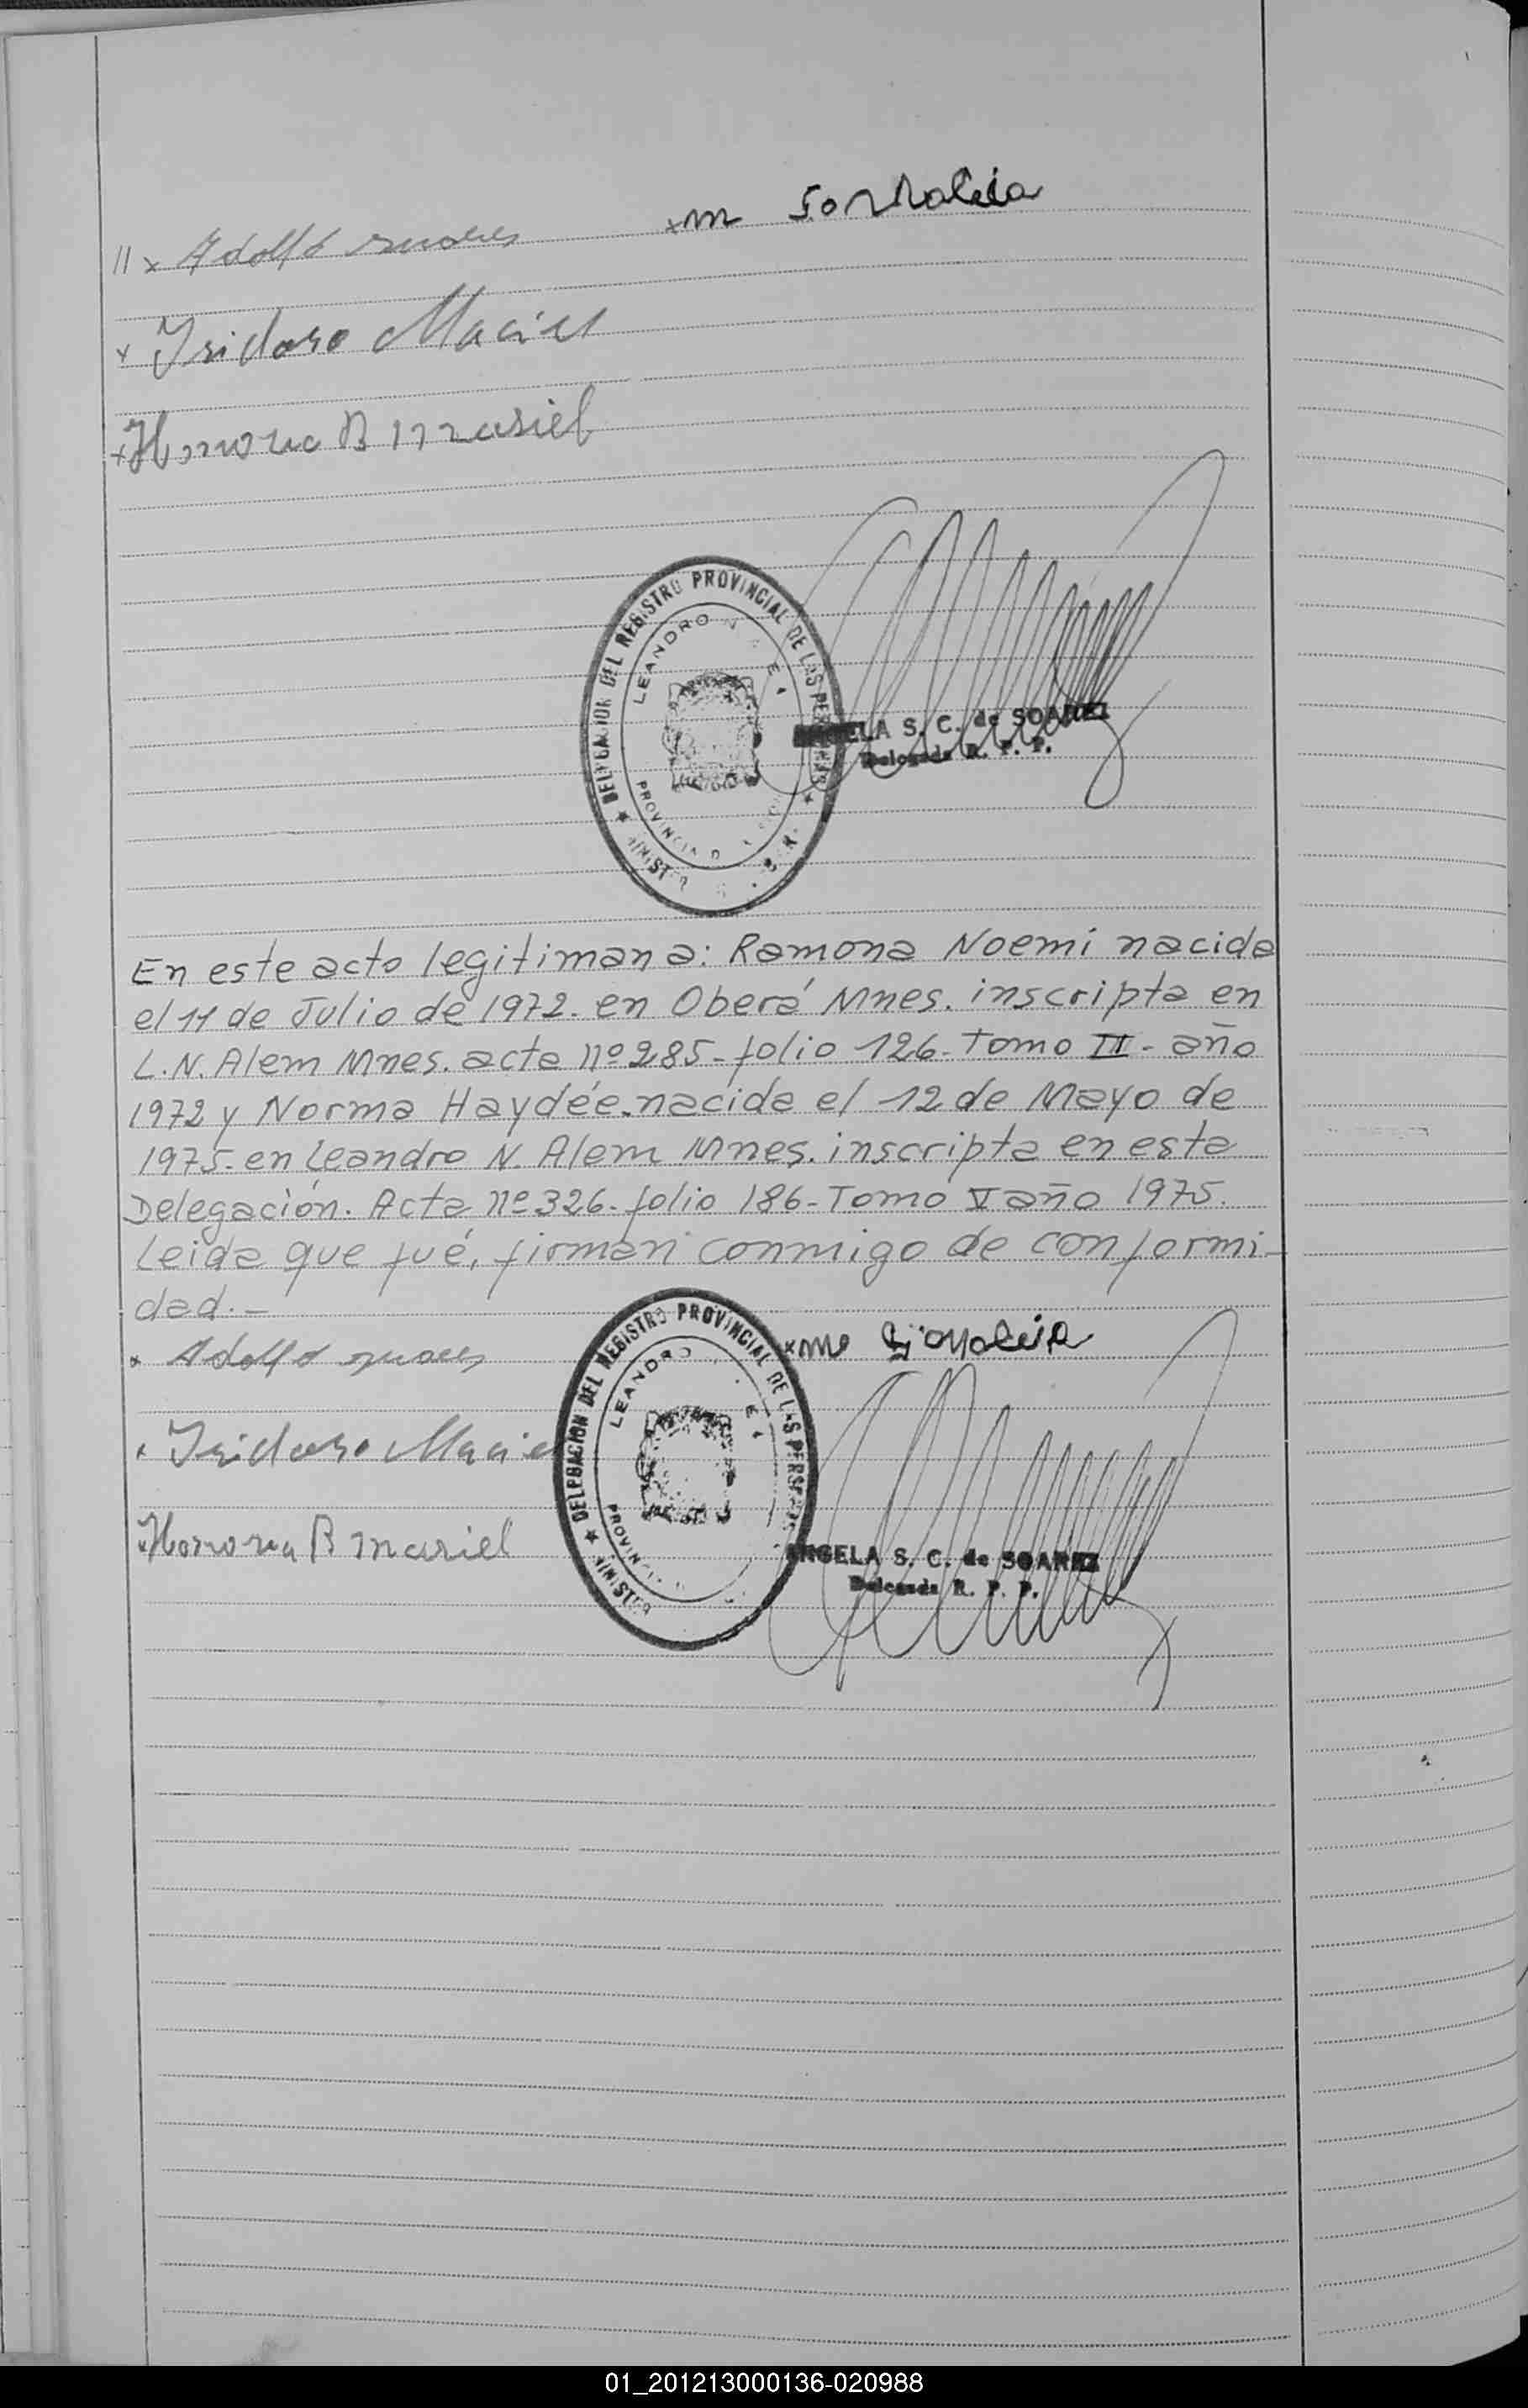 // x Adolfo
x m
x Isidoro Maciel
x Honoria B Maciel
DELEGACION DEL REGISTRO PROVINCIAL DE LAS PERSONAS
LEANDRO N
PROVINCIA D
MINIST
ANGELA S. C. de SOAREZ
Delegada R. P. P.
En este acto legitiman a: Ramona Noemí nacida
el 11 de Julio de 1972. en Oberá Mnes. inscripta en
L.N. Alem Mnes. acta nº 285- folio 126- Tomo III- año
1972 y Norma Haydée. nacida el 12 de Mayo de
1975- en Leandro N. Alem Mnes. inscripta en esta
Delegación. Acta nº 326- folio 186- Tomo V año 1975.
Leida que fué, firman conmigo de conformi-
dad.-
x Adolfo
x Isidoro Maciel
x Honoria B Maciel
DELEGACION DEL REGISTRO PROVINCIAL DE LAS PERSONAS
LEANDRO
PROVIN
MINISTER
ANGELA S. C. de SOAREZ
Delegada R. P. P.
01_201213000136-020988